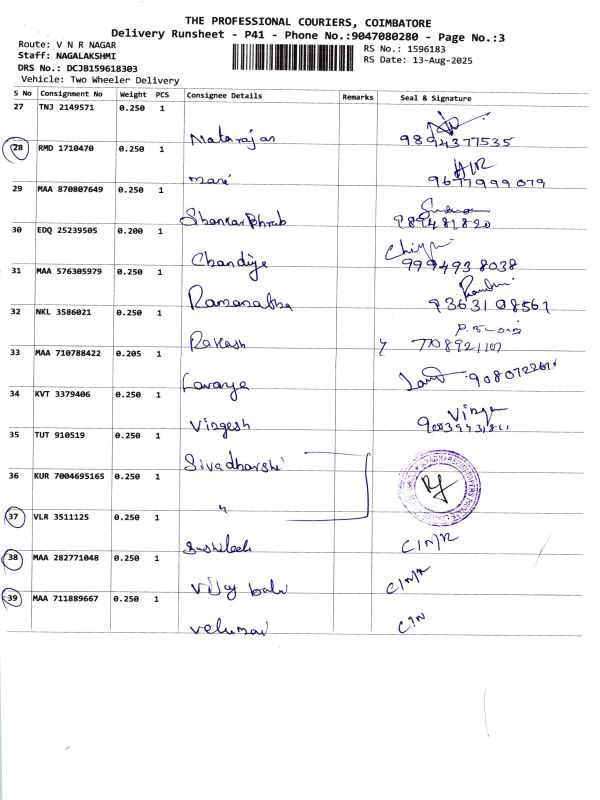 THE PROFESSIONAL COURIERS, COIMBATORE
Delivery Runsheet - P41 - Phone No.:9047080280 - Page No.:3
Route: V N R NAGAR
RS No.: 1596183
Staff: NAGALAKSHMI
RS Date: 13-Aug-2025
DRS No.: DCJB159618303
Vehicle: Two Wheeler Delivery
S No Consignment No Weight PCS Consignee Details Remarks Seal & Signature
27 TNJ 2149571 0.250 1
Natarajan 9894377535
28 RMD 1710470 0.250 1
mani 9677999079
29 MAA 870807649 0.250 1
989481820
30 EDQ 25239505 0.200 1
Chandiye 9994938038
31 MAA 576305979 0.250 1
9363108567
32 NKL 3586021 0.250 1
Rakesh 7708921107
33 MAA 710788422 0.205 1
Lavanya
34 KVT 3379406 0.250 1
Virgesh
35 TUT 910519 0.250 1
Sivadharshi
36 KUR 7004695165 0.250 1
"
37 VLR 3511125 0.250 1
C/N/R
38 MAA 282771048 0.250 1
Vijay balu C/N/R
39 MAA 711889667 0.250 1
velumai C/N